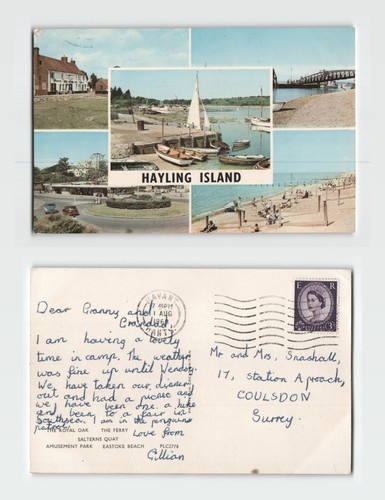 HAYLING ISLAND
HAVANT
7 PM
1 AUG
HANTS
E R
3D
Dear Granny and
Grandad,
I am having a lovely
time in camp. The weather
was fine up until Wendsy.
We have taken our dinner
out and had a picnic and
we have been one a hike
and been to a fair in
Southsea. I am in the penguins
patrol. Love from
Gillian
Mr and Mrs, Snashall,
17, Station Aproach,
COULSDON
Surrey.
THE ROYAL OAK THE FERRY
SALTERNS QUAY
AMUSEMENT PARK EASTOKE BEACH PLC2778